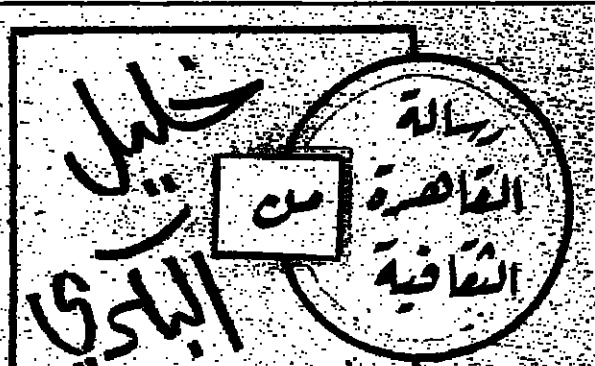 رسالة
القاهرة
الثقافية
من
خليل
البلدي